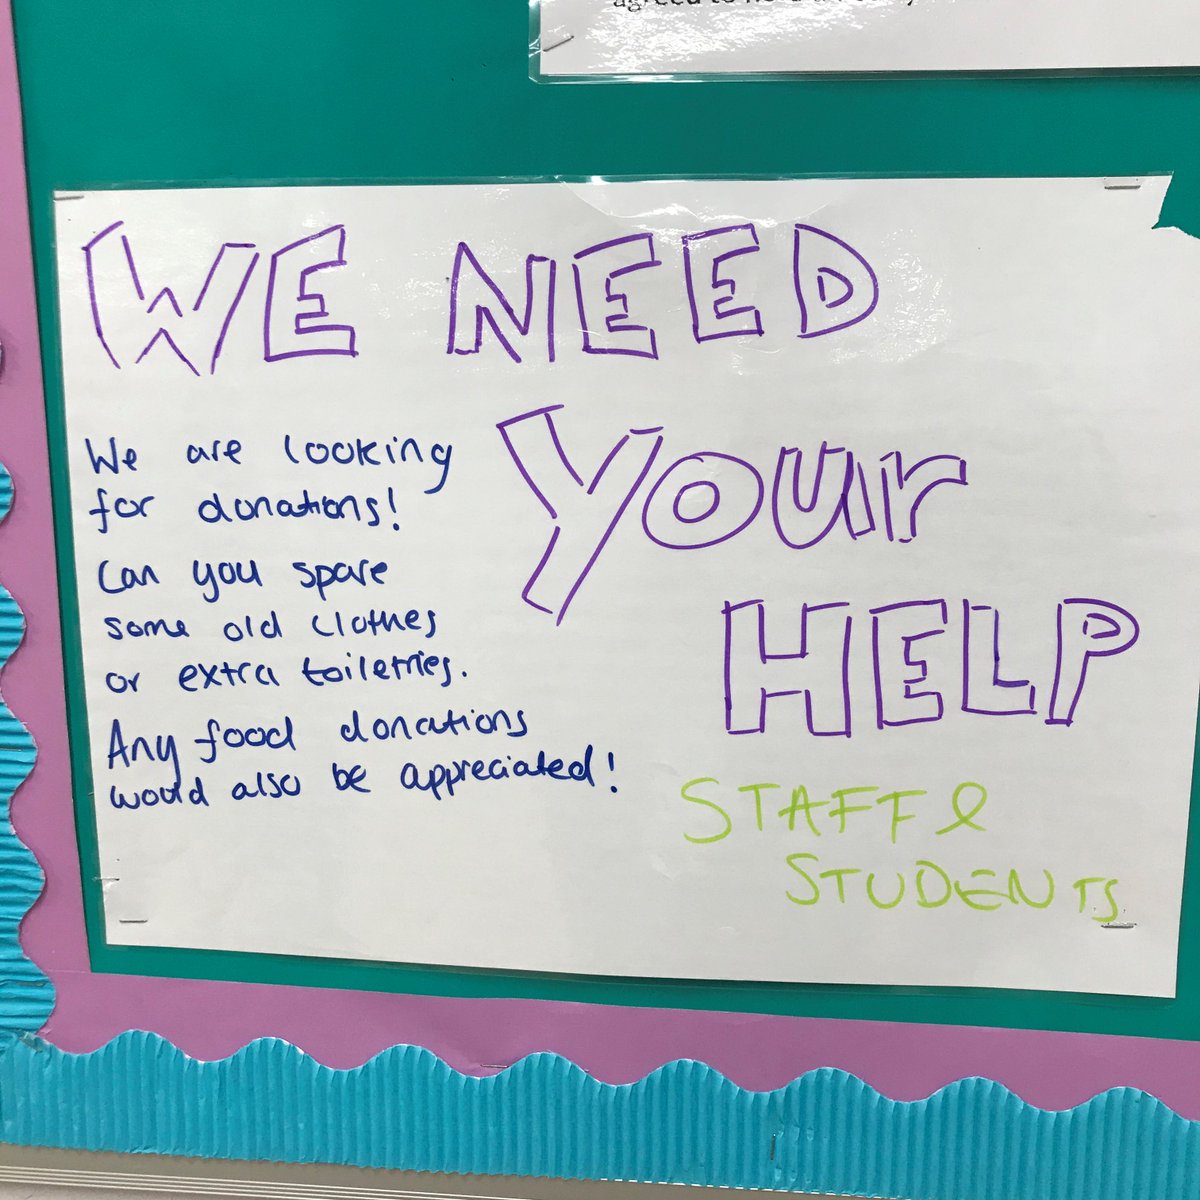 WE NEED
Your
HELP
We are looking
for donations!
Can you spare
some old clothes
or extra toiletries.
Any food donations
would also be appreciated!
STAFF &
STUDENTS